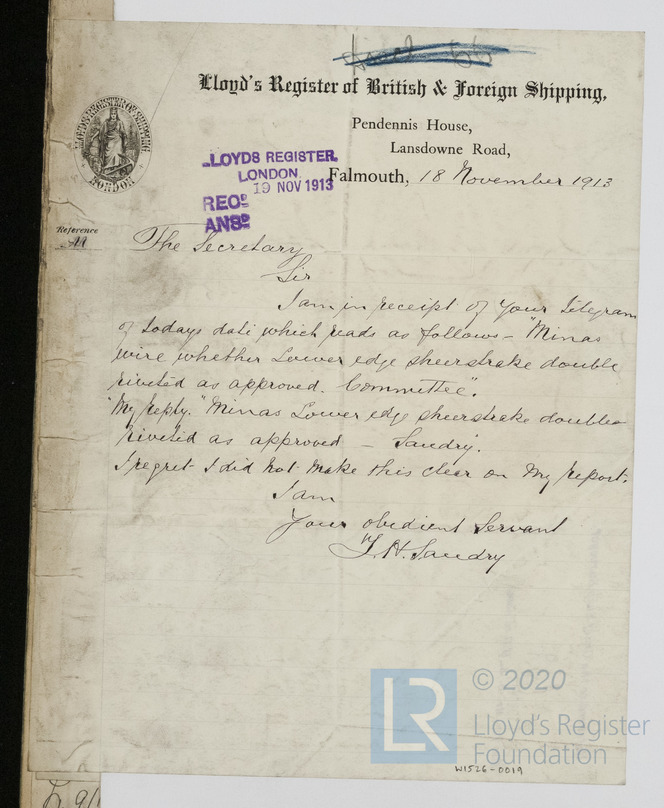 Lloyd's Register of British & Foreign Shipping,
LLOYD'S REGISTER OF SHIPPING
LONDON
Pendennis House,
Lansdowne Road,
LLOYDS REGISTER,
LONDON.
19 NOV 1913
REC^D
ANS^D
Falmouth, 18 November 1913
Reference
The Secretary
Sir
I am in receipt of your telegram
of todays date which reads as follows – "Minas
wire whether Lower edge sheerstrake double
riveted as approved. Committee".
"My reply." Minas Lower edge sheerstrake double
riveted as approved – Sandry".
I regret I did not make this clear on my report.
I am
Your obedient Servant
T. H. Sandry
LR
© 2020
Lloyd's Register
Foundation
W1526-0019